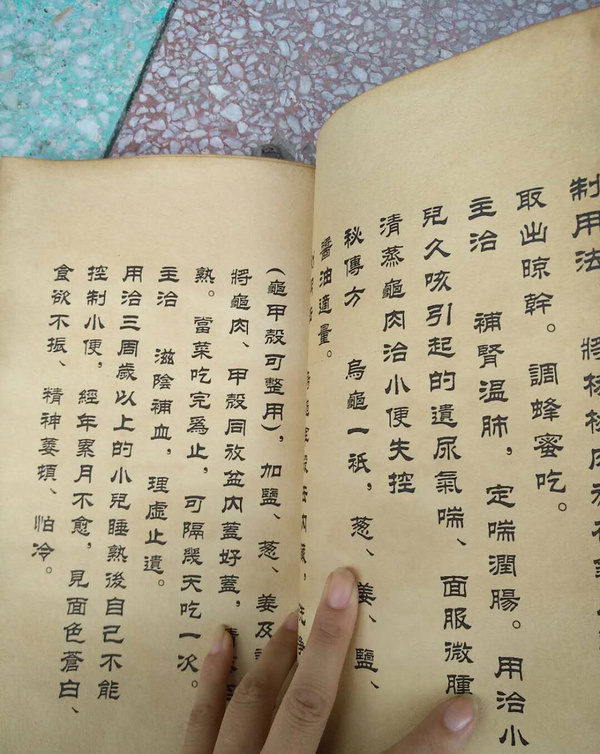 制用法 將核
取出晾幹。調蜂蜜吃。
主治 補腎溫肺，定喘潤腸。用治小
兒久咳引起的遺尿氣喘、面服微腫
清蒸龜肉治小便失控
秘傳方 烏龜一衹，葱、姜、鹽、
醬油適量。
(龜甲殼可整用)，加鹽、葱、姜及
將龜肉、甲殼同放盆內蓋好蓋，
熟。當菜吃完爲止，可隔幾天吃一次。
主治 滋陰補血，理虛止遺。
用治三周歲以上的小兒睡熟後自己不能
控制小便，經年累月不愈，見面色蒼白、
食欲不振、精神蔞頓、怕冷。